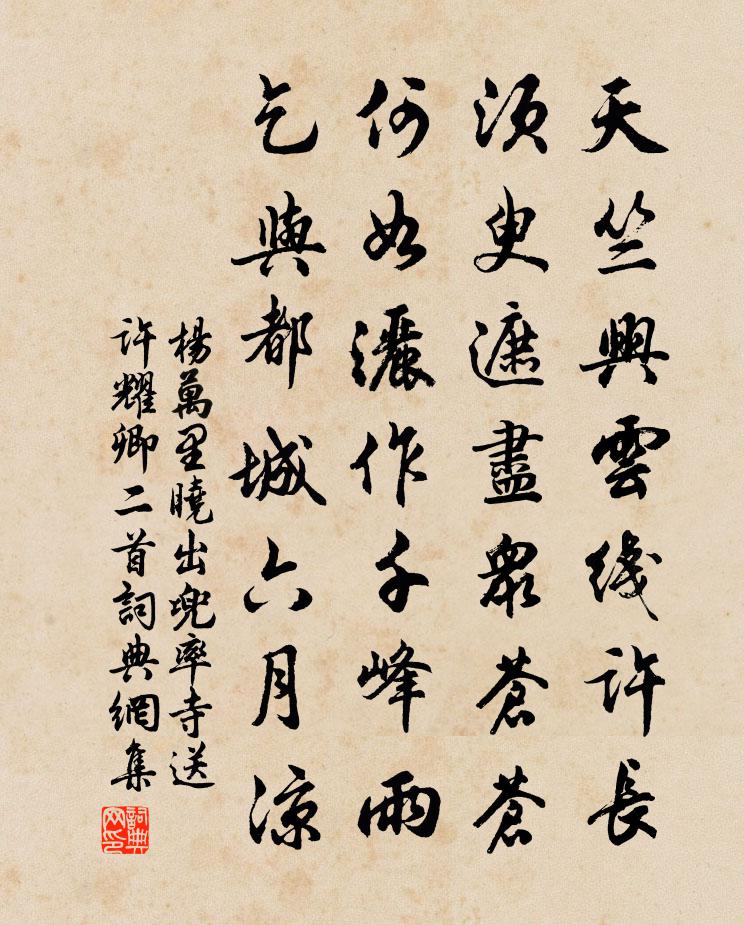 天竺興雲綫許長
須臾遮盡衆蒼蒼
何如灑作千峰雨
乞與都城六月涼
楊萬里曉出兜率寺送
許耀卿二首詞典網集
詞典
网印